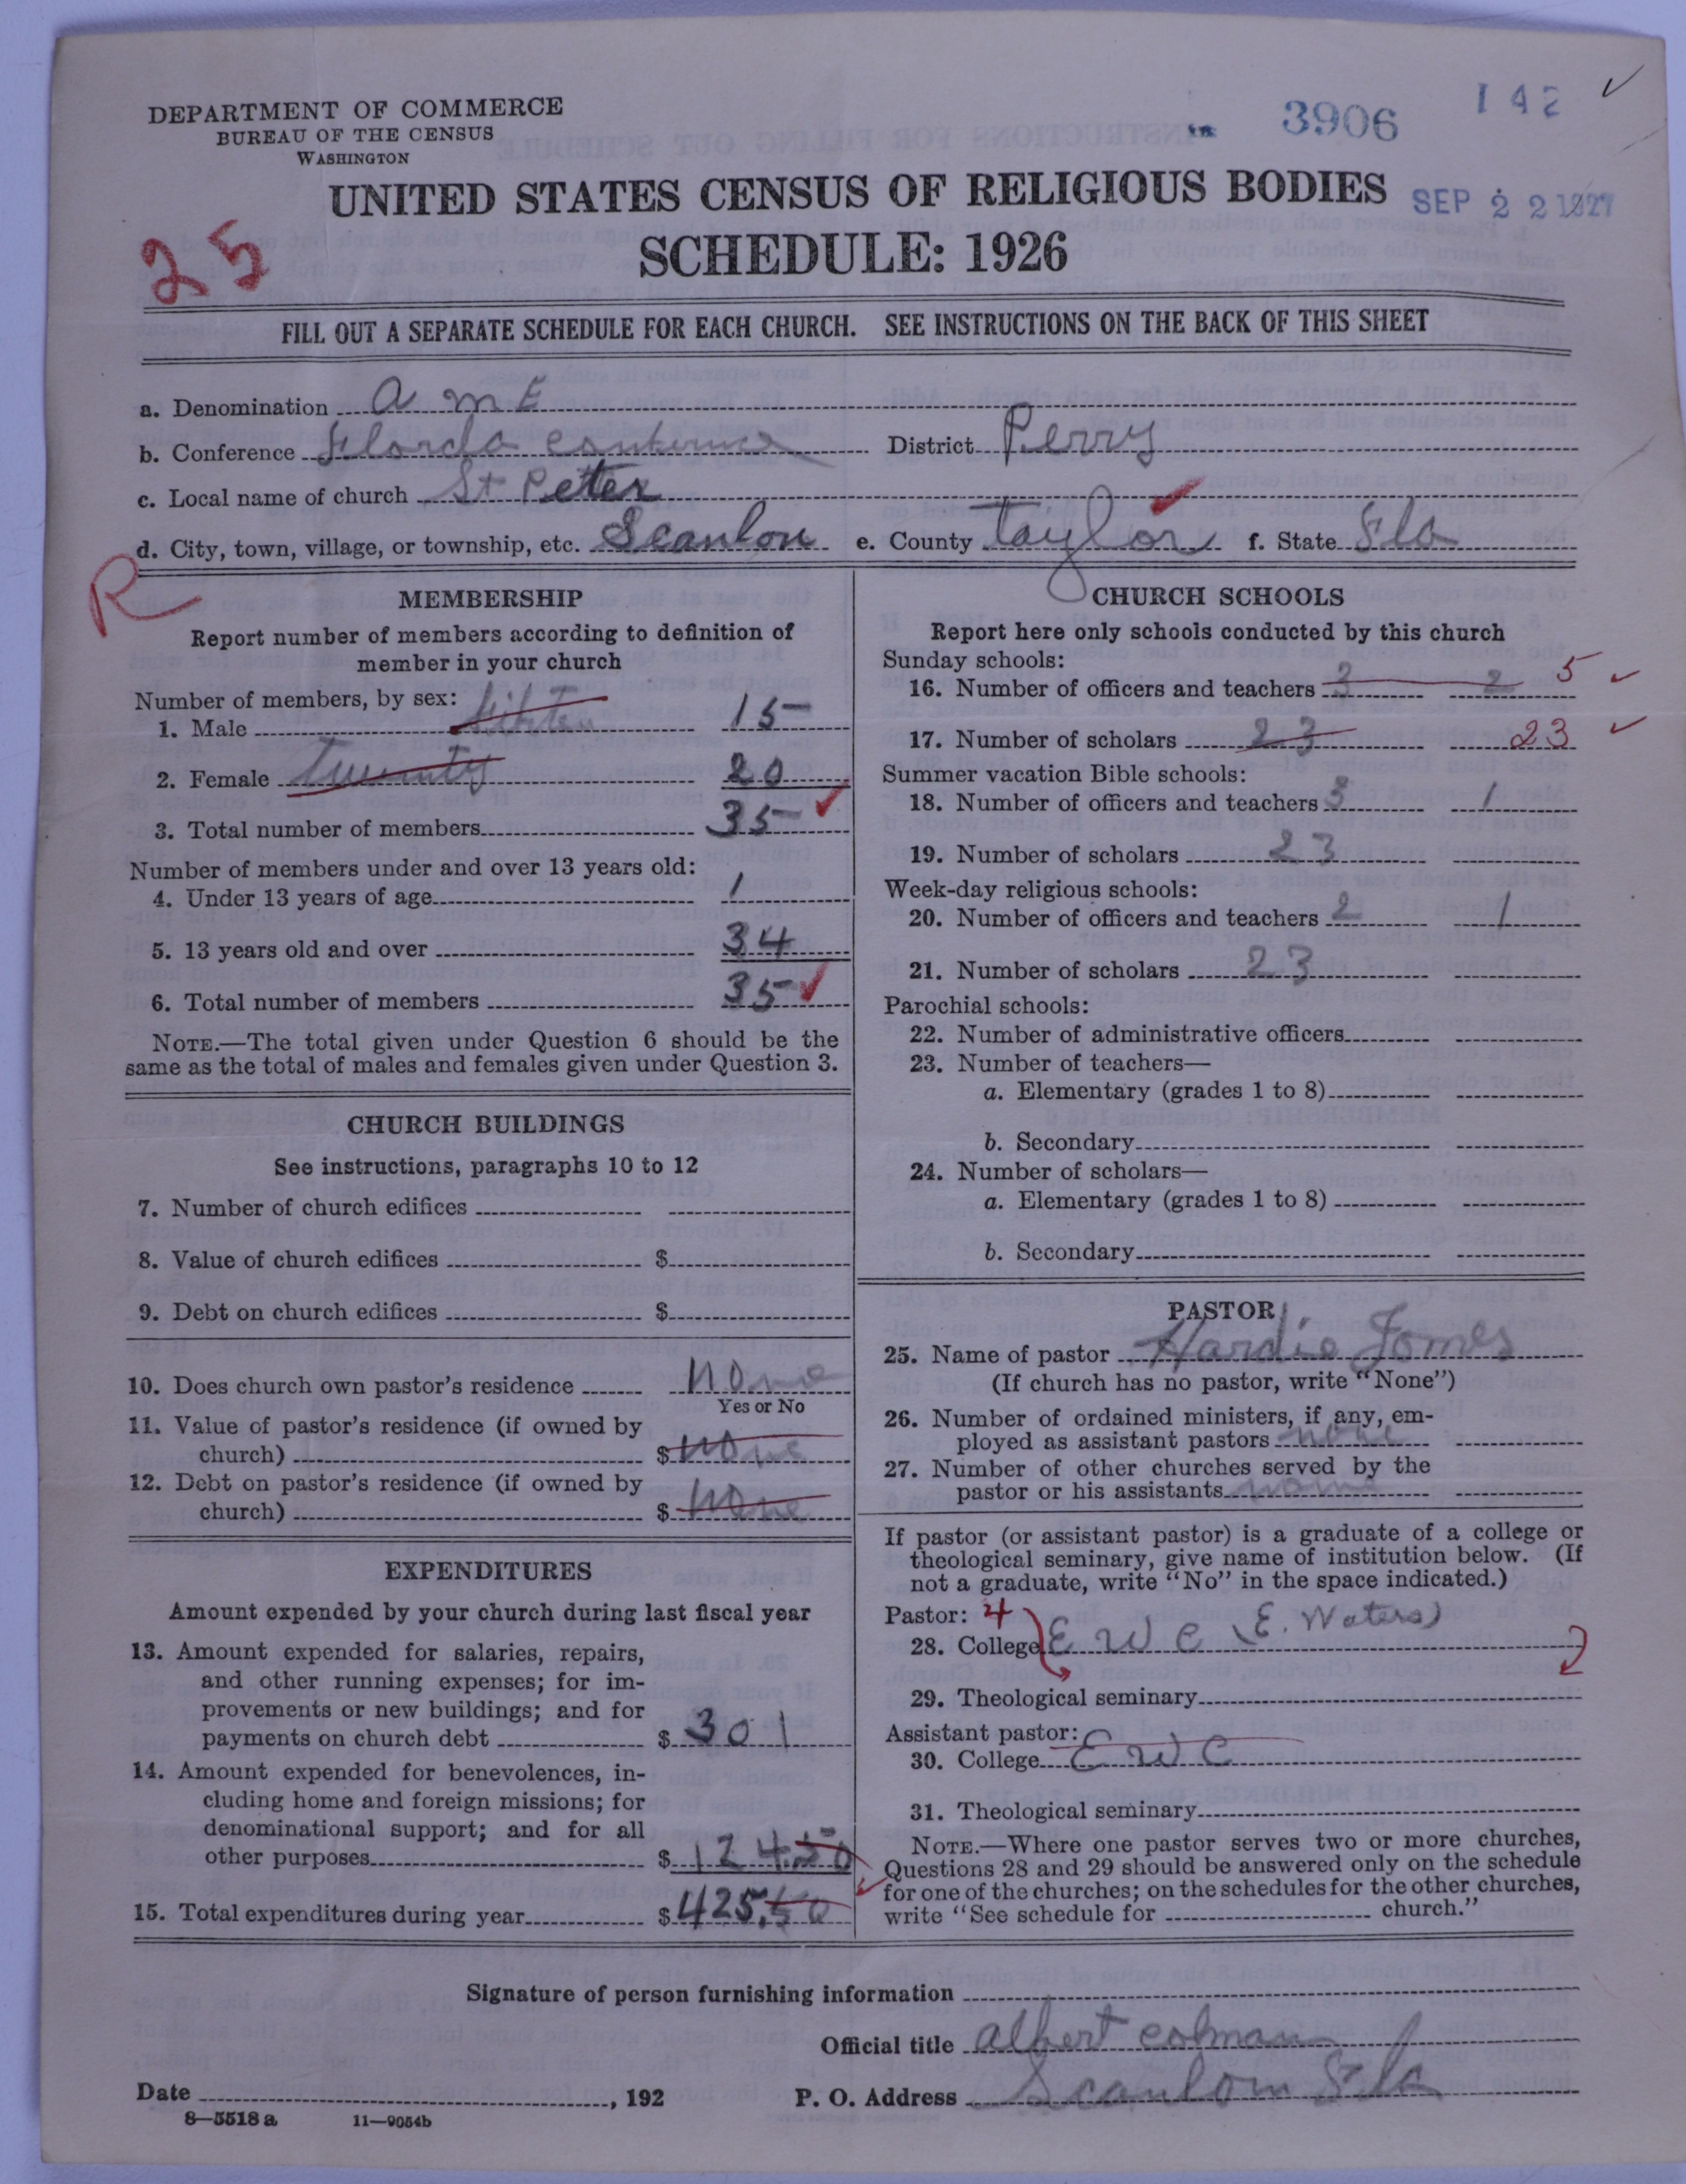 DEPARTMENT OF COMMERCE
BUREAU OF THE CENSUS
WASHINGTON
3906
142
UNITED STATES CENSUS OF RELIGIOUS BODIES
SEP 22 1927
SCHEDULE: 1926
25
FILL OUT A SEPARATE SCHEDULE FOR EACH CHURCH. SEE INSTRUCTIONS ON THE BACK OF THIS SHEET
a. Denomination A M E
b. Conference Florda conference District Perry
c. Local name of church St Petter
d. City, town, village, or township, etc. Scanlon e. County Taylor f. State Fla
R
MEMBERSHIP
Report number of members according to definition of
member in your church
Number of members, by sex:
1. Male fiften 15
2. Female Twenty 20
3. Total number of members 35
Number of members under and over 13 years old:
4. Under 13 years of age 1
5. 13 years old and over 34
6. Total number of members 35
NOTE.—The total given under Question 6 should be the
same as the total of males and females given under Question 3.
CHURCH BUILDINGS
See instructions, paragraphs 10 to 12
7. Number of church edifices
8. Value of church edifices $
9. Debt on church edifices $
10. Does church own pastor's residence None
Yes or No
11. Value of pastor's residence (if owned by
church) $ None
12. Debt on pastor's residence (if owned by
church) $ None
EXPENDITURES
Amount expended by your church during last fiscal year
13. Amount expended for salaries, repairs,
and other running expenses; for im-
provements or new buildings; and for
payments on church debt $ 301
14. Amount expended for benevolences, in-
cluding home and foreign missions; for
denominational support; and for all
other purposes $ 124.50
15. Total expenditures during year $ 425.50
CHURCH SCHOOLS
Report here only schools conducted by this church
Sunday schools:
16. Number of officers and teachers 3 2 5
17. Number of scholars 23 23
Summer vacation Bible schools:
18. Number of officers and teachers 3 1
19. Number of scholars 23
Week-day religious schools:
20. Number of officers and teachers 2 1
21. Number of scholars 23
Parochial schools:
22. Number of administrative officers
23. Number of teachers—
a. Elementary (grades 1 to 8)
b. Secondary
24. Number of scholars—
a. Elementary (grades 1 to 8)
b. Secondary
PASTOR
25. Name of pastor Hardie Jomes
(If church has no pastor, write "None")
26. Number of ordained ministers, if any, em-
ployed as assistant pastors none
27. Number of other churches served by the
pastor or his assistants none
If pastor (or assistant pastor) is a graduate of a college or
theological seminary, give name of institution below. (If
not a graduate, write "No" in the space indicated.)
Pastor: 4
28. College E W C (E. Waters)
29. Theological seminary
Assistant pastor:
30. College E W C
31. Theological seminary
NOTE.—Where one pastor serves two or more churches,
Questions 28 and 29 should be answered only on the schedule
for one of the churches; on the schedules for the other churches,
write "See schedule for church."
Signature of person furnishing information
Official title albert colman
Date , 192 P. O. Address Scanlom Fla
8—5518 a 11—9054b